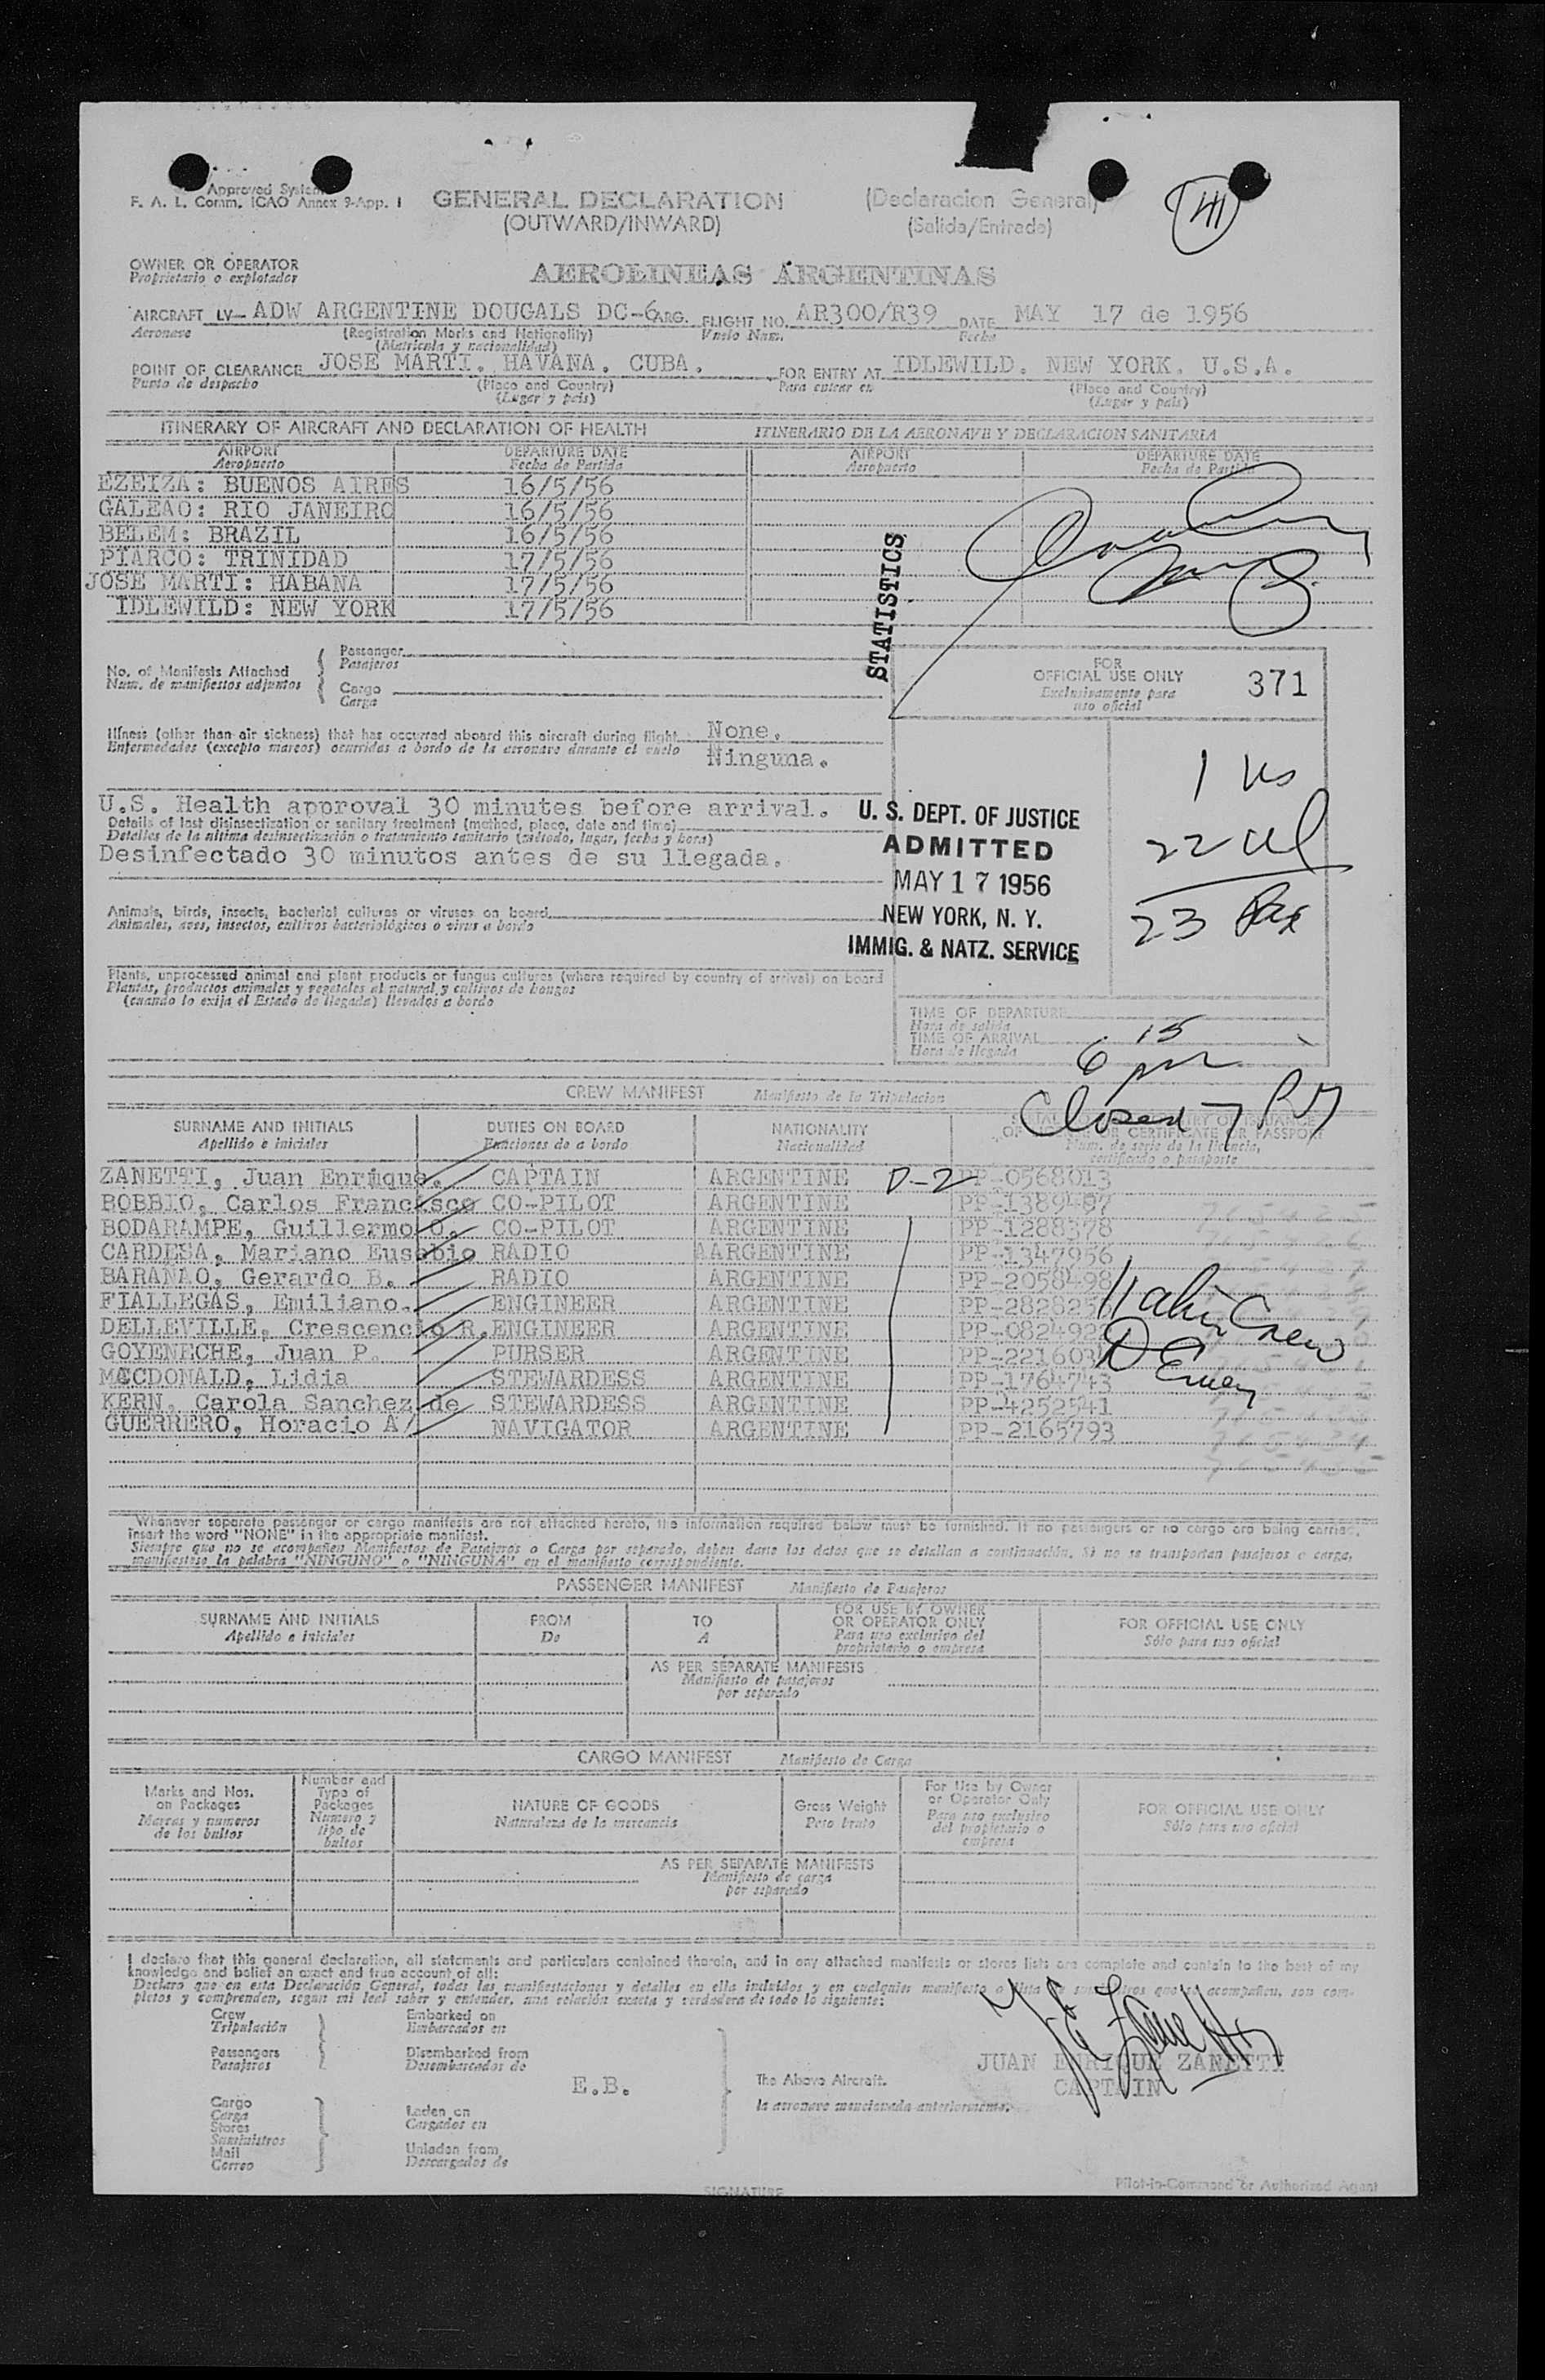 Approved System
F. A. L. Comm. ICAO Annex 9-App. I
GENERAL DECLARATION (Declaracion General)
(OUTWARD/INWARD) (Salida/Entrada)
OWNER OR OPERATOR
Proprietario o explotador
AEROLINEAS ARGENTINAS
AIRCRAFT LV- ADW ARGENTINE DOUGALS DC-6 ARG. FLIGHT NO. AR300/R39 DATE MAY 17 de 1956
Aeronave (Registration Marks and Nationality) Vuelo Num. Fecha
(Matricula y nacionalidad)
POINT OF CLEARANCE JOSE MARTI. HAVANA. CUBA. FOR ENTRY AT IDLEWILD. NEW YORK. U.S.A.
Punto de despacho (Place and Country) Para entrar en (Place and Country)
(Lugar y pais) (Lugar y pais)
ITINERARY OF AIRCRAFT AND DECLARATION OF HEALTH ITINERARIO DE LA AERONAVE Y DECLARACION SANITARIA
AIRPORT DEPARTURE DATE AIRPORT DEPARTURE DATE
Aeropuerto Fecha de Partida Aeropuerto Fecha de Partida
EZEIZA: BUENOS AIRES 16/5/56
GALEAO: RIO JANEIRO 16/5/56
BELEM: BRAZIL 16/5/56
PIARCO: TRINIDAD 17/5/56
JOSE MARTI: HABANA 17/5/56
IDLEWILD: NEW YORK 17/5/56
STATISTICS
No. of Manifests Attached
Num. de manifiestos adjuntos
Passenger
Pasajeros
Cargo
Carga
FOR
OFFICIAL USE ONLY 371
Exclusivamente para
uso oficial
Illness (other than air sickness) that has occurred aboard this aircraft during flight None.
Enfermedades (excepto mareos) ocurridas a bordo de la aeronave durante el vuelo Ninguna.
U.S. Health approval 30 minutes before arrival.
Details of last disinsectization or sanitary treatment (method, place, date and time)
Detalles de la ultima desinsectización o tratamiento sanitario (método, lugar, fecha y hora)
Desinfectado 30 minutos antes de su llegada.
U. S. DEPT. OF JUSTICE
ADMITTED
MAY 17 1956
NEW YORK, N. Y.
IMMIG. & NATZ. SERVICE
1 us
22 al
23 Pax
Animals, birds, insects, bacterial cultures or viruses on board
Animales, aves, insectos, cultivos bacteriológicos o virus a bordo
Plants, unprocessed animal and plant products or fungus cultures (where required by country of arrival) on board
Plantas, productos animales y vegetales al natural y cultivos de hongos
(cuando lo exija el Estado de llegada) llevados a bordo
TIME OF DEPARTURE
Hora de salida
TIME OF ARRIVAL 6 15 pm
Hora de llegada
Closed 7 PM
CREW MANIFEST Manifiesto de la Tripulacion
SURNAME AND INITIALS DUTIES ON BOARD NATIONALITY
Apellido e iniciales Funciones de a bordo Nacionalidad
OR CERTIFICATE OR PASSPORT
Num. de serie de la licencia,
certificado o pasaporte
ZANETTI, Juan Enrique. CAPTAIN ARGENTINE D-2 PP-0568013
BOBBIO, Carlos Francisco CO-PILOT ARGENTINE PP-1389497
BODARAMPE, Guillermo O. CO-PILOT ARGENTINE PP-1288378
CARDESA, Mariano Eusebio RADIO AARGENTINE PP-1347956
BARANAO, Gerardo B. RADIO ARGENTINE PP-2058498
FIALLEGAS, Emiliano. ENGINEER ARGENTINE
DELLEVILLE, Crescencio R. ENGINEER ARGENTINE
GOYENECHE, Juan P. PURSER ARGENTINE
MACDONALD, Lidia STEWARDESS ARGENTINE PP-1764743
KERN, Carola Sanchez de STEWARDESS ARGENTINE PP-4252541
GUERRERO, Horacio A. NAVIGATOR ARGENTINE PP-2165793
Crew
Whenever separate passenger or cargo manifests are not attached hereto, the information required below must be furnished. If no passengers or no cargo are being carried,
insert the word "NONE" in the appropriate manifest.
Siempre que no se acompañen Manifiestos de Pasajeros o Carga por separado, deben darse los datos que se detallan a continuación. Si no se transportan pasajeros o carga,
manifiestese la palabra "NINGUNO" o "NINGUNA" en el manifiesto correspondiente.
PASSENGER MANIFEST Manifiesto de Pasajeros
SURNAME AND INITIALS FROM TO FOR USE BY OWNER OR OPERATOR ONLY FOR OFFICIAL USE ONLY
Apellido e iniciales De A Para uso exclusivo del propietario o empresa Sólo para uso oficial
AS PER SEPARATE MANIFESTS
Manifiesto de pasajeros
por separado
CARGO MANIFEST Manifiesto de Carga
Marks and Nos. on Packages Number and Type of Packages NATURE OF GOODS Gross Weight For Use by Owner or Operator Only FOR OFFICIAL USE ONLY
Marcas y numeros de los bultos Numero y tipo de bultos Naturaleza de la mercancia Peso bruto Para uso exclusivo del propietario o empresa Sólo para uso oficial
AS PER SEPARATE MANIFESTS
Manifiesto de carga
por separado
I declare that this general declaration, all statements and particulars contained therein, and in any attached manifests or stores lists are complete and contain to the best of my
knowledge and belief an exact and true account of all:
Declaro que en esta Declaración General, todas las manifestaciones y detalles en ella incluidos y en cualquier manifiesto o lista de suministros que se acompañen, son com-
pletos y comprenden, segun mi leal saber y entender, una relación exacta y verdadera de todo lo siguiente:
Crew Embarked on
Tripulación Embarcados en
Passengers Disembarked from
Pasajeros Desembarcados de
E.B.
The Above Aircraft.
la aeronave mencionada anteriormente.
J E Zanetti
JUAN ENRIQUE ZANETTI
CAPTAIN
Cargo Laden on
Carga Cargados en
Stores
Suministros
Mail Unladen from
Correo Descargados de
SIGNATURE
Pilot-in-Command or Authorized Agent